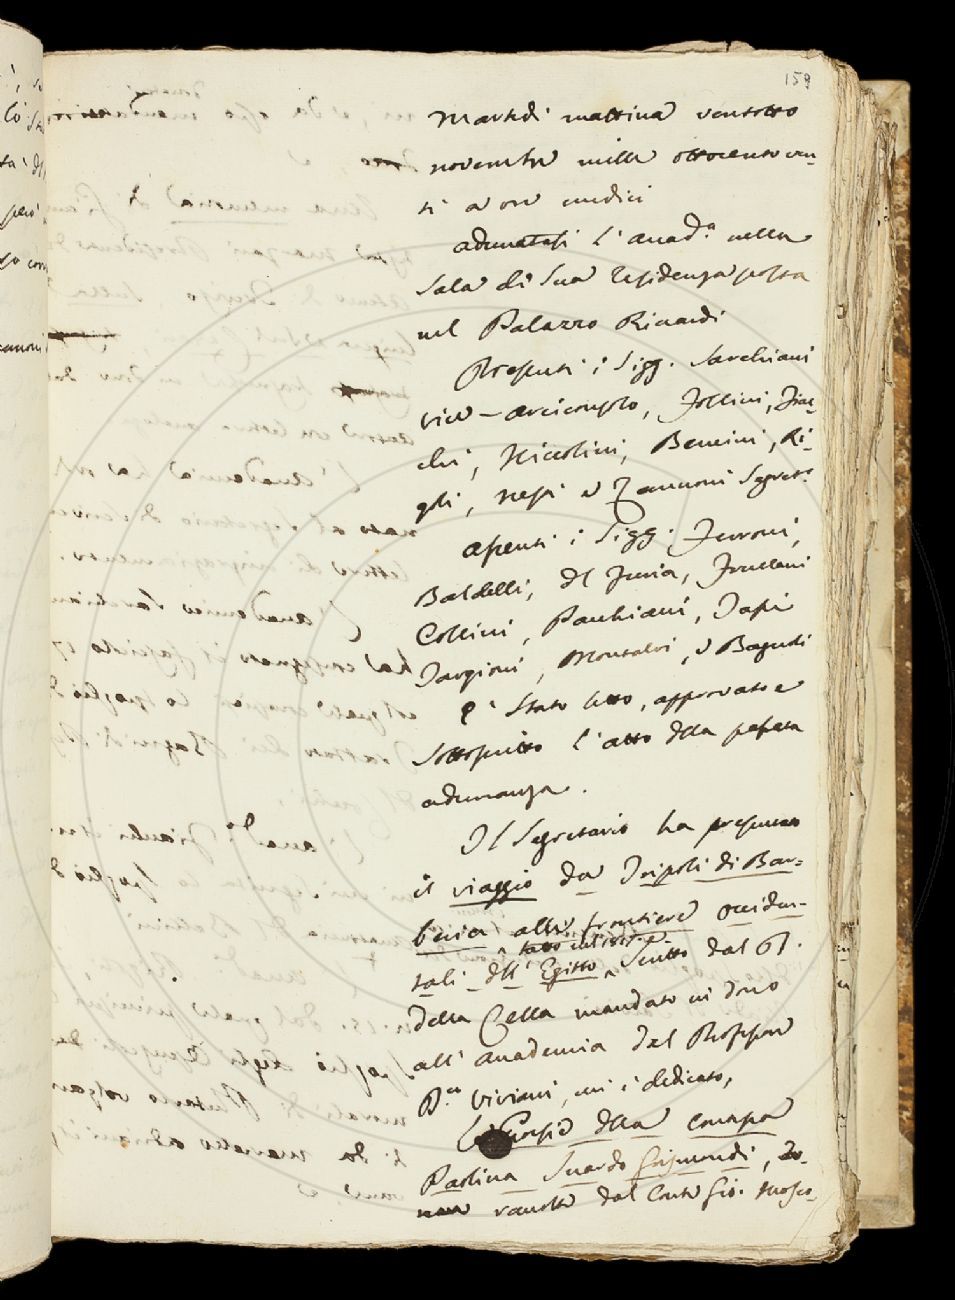 159
Martedì mattina ventotto
novembre mille ottocento ven-
ti a ore undici
adunatasi l'Accad.a nella
Sala di Sua residenza posta
nel Palazzo Riccardi
Presenti i Sigg. Sarchiani
vice-arciconsolo, Follini, Fiac-
chi, Niccolini, Bencini, Ri-
goli, Nesti e Zannoni Segret.o
assenti i Sigg. Ferroni,
Baldelli, del Furia, Frullani
Collini, Pauchiani, Papi
Targioni, Montalvi, e Bagnoli
È stato letto, approvato e
sottoscritto l'atto della passata
adunanza.
Il Segretario ha presentato
il viaggio da Tripoli di Bar-
beria alle frontiere occiden-
tali dell'Egitto scritto dal D.
della Cella mandato in dono
all'Accademia dal Professore
D.re Viviani, cui è dedicato,
Le Poesie della Contessa
Paolina Suardo Grismondi,
raccolte dal Conte Gio. Mosco-